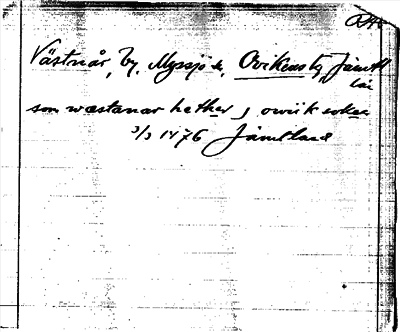 RAp
Västnår, by, Myssjö s., Ovikens tg, Jämtl
län
som wæstanar hether j owiik soken
3/3 1476 Jämtland